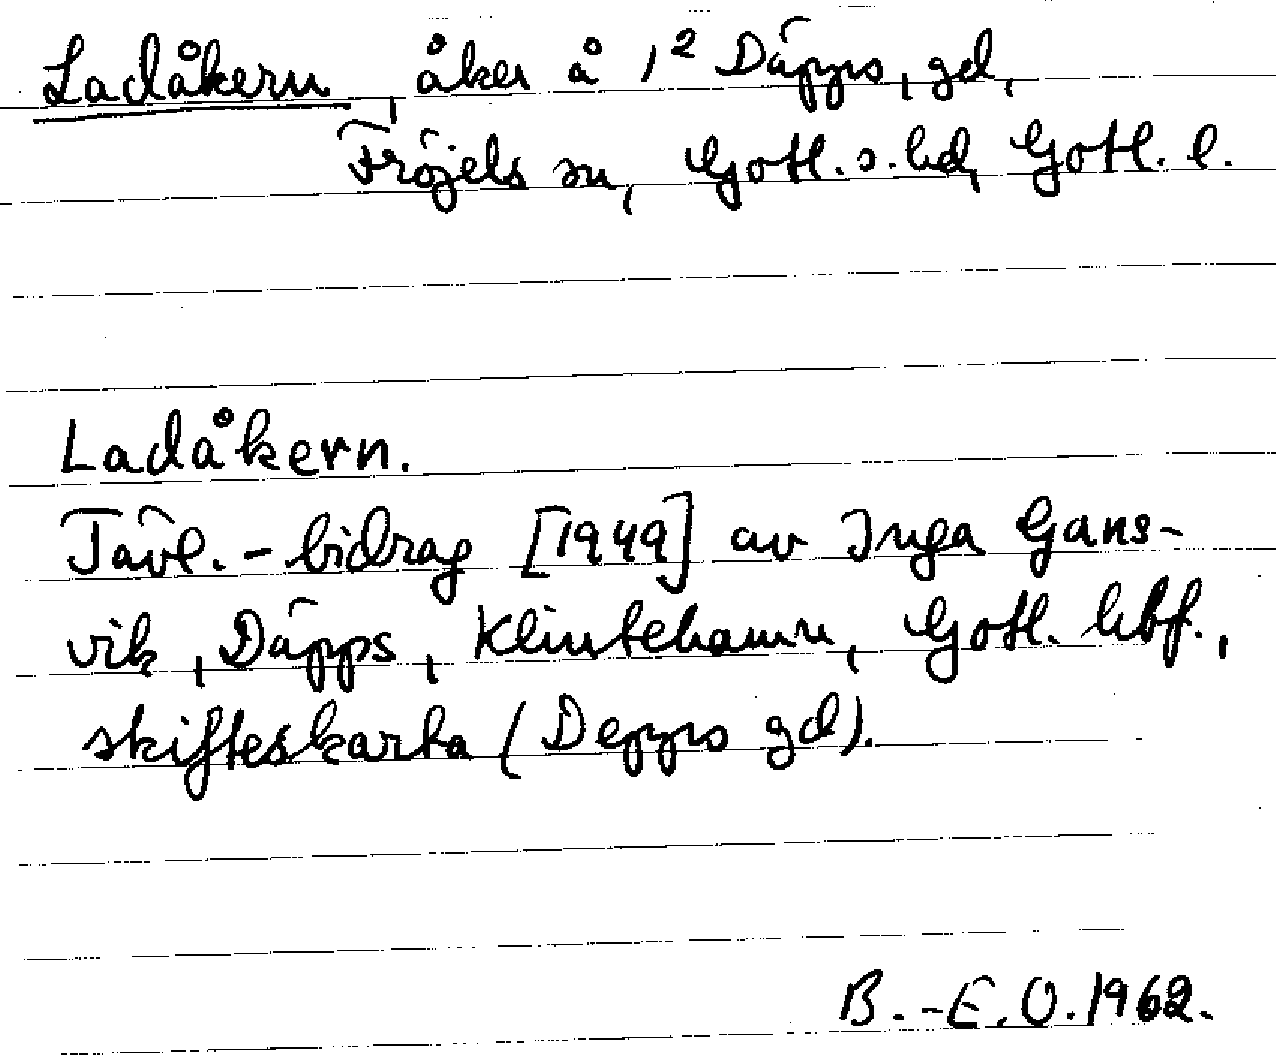 Ladåkern, åker å 1² Däpps, gd,
Fröjels sn, Gotl. s. hd, Gotl. l.
Ladåkern.
Tävl.-bidrag [1949] av Inga Gans-
vik, Däpps, Klintehamn, Gotl. kbf.,
skifteskarta (Depps gd).
B.-E. O. 1962.